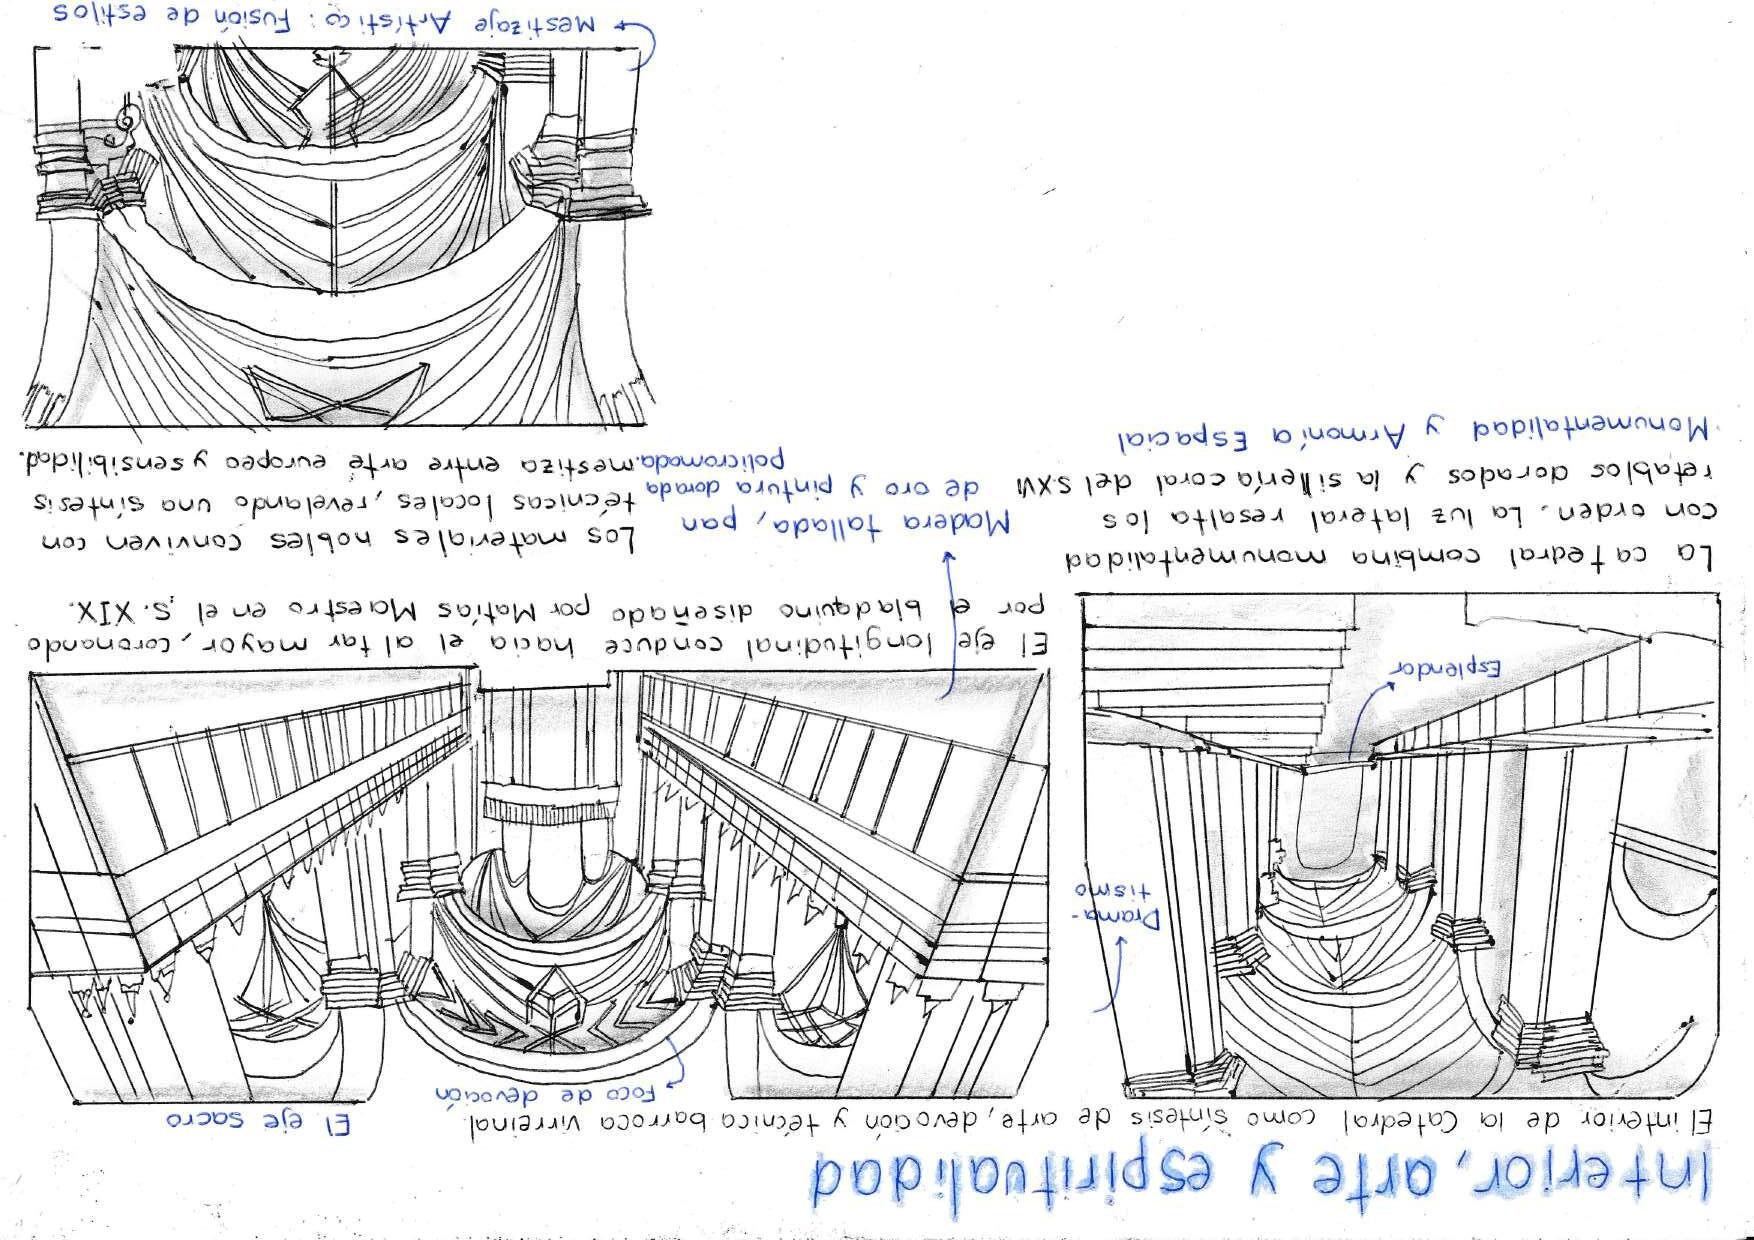 Interior, arte y espiritualidad
El interior de la Catedral como síntesis de arte, devoción y técnica barroca virreinal.
El eje sacro
Foco de devoción
Drama-
tismo
Esplendor
El eje longitudinal conduce hacia el altar mayor, coronando
por el bladquino diseñado por Matías Maestro en el S. XIX.
La catedral combina monumentalidad
con orden. La luz lateral resalta los
retablos dorados y la sillería coral del S.XVI
Monumentalidad y Armonía Espacial
Madera tallada, pan
de oro y pintura dorada
policromada.
Los materiales nobles conviven con
técnicas locales, revelando una síntesis
mestiza entre arte europeo y sensibilidad.
Mestizaje Artístico: Fusión de estilos